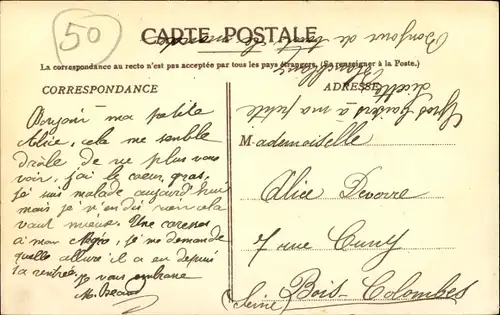 50
CARTE POSTALE
La correspondance au recto n'est pas acceptée par tous les pays étrangers. (Se renseigner à la Poste.)
CORRESPONDANCE
ADRESSE
Bonjour ma petite
Alice, cela me semble
drôle de ne plus vous
voir, j'ai le cœur gros,
je suis malade aujourd'hui
mais je n'en dis rien cela
vaut mieux. Une caresse
à mon Négro, je me demande
quelle allure il a en depuis
la rentrée.
Je vous embrasse
M.
Mademoiselle
Alice Devorre
7 rue Cuny
Bois-Colombes
(Seine)
Bonjour de toute la
Gros baisers à ma petite